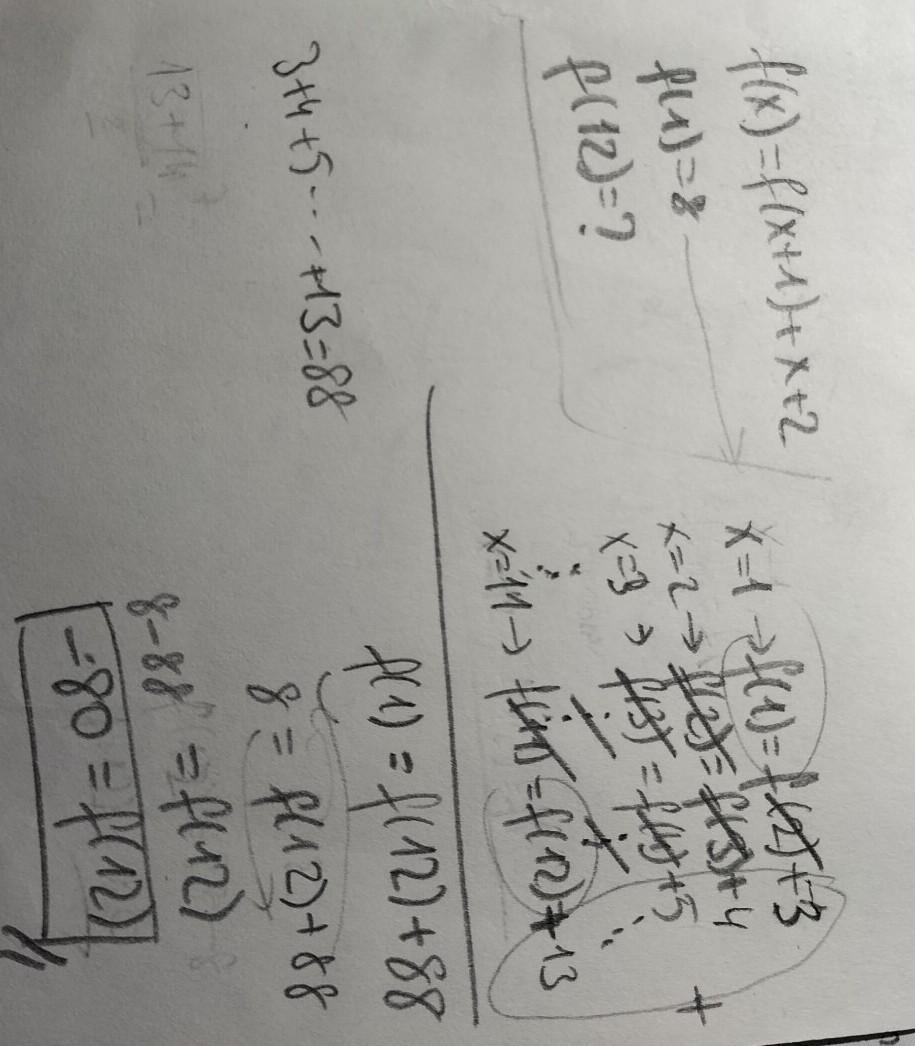 f(x)=f(x+1)+x+2
f(1)=8
f(12)=?
x=1 → f(1)=f(2)+3
x=2 → f(2)=f(3)+4
x=3 → f(3)=f(4)+5
x=11 → f(11)=f(12)+13
+
3+4+5...+13=88
13+14
f(1)=f(12)+88
8=f(12)+88
8-88=f(12)
-80=f(12)